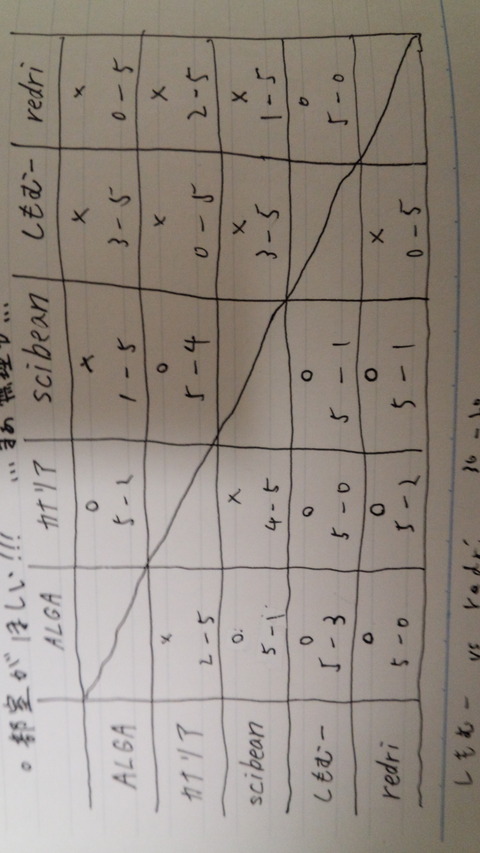 ○ 部室がほしい!!! …まあ無理
ALGA カナリア scibean しもむー redri
ALGA ○ × × ×
5-2 1-5 3-5 0-5
カナリア × ○ × ×
2-5 5-4 0-5 2-5
scibean ○ × × ×
5-1 4-5 3-5 1-5
しもむー ○ ○ ○ ○
5-3 5-0 5-1 5-0
redri ○ ○ ○ ×
5-0 5-2 5-1 0-5
しもむー vs redri